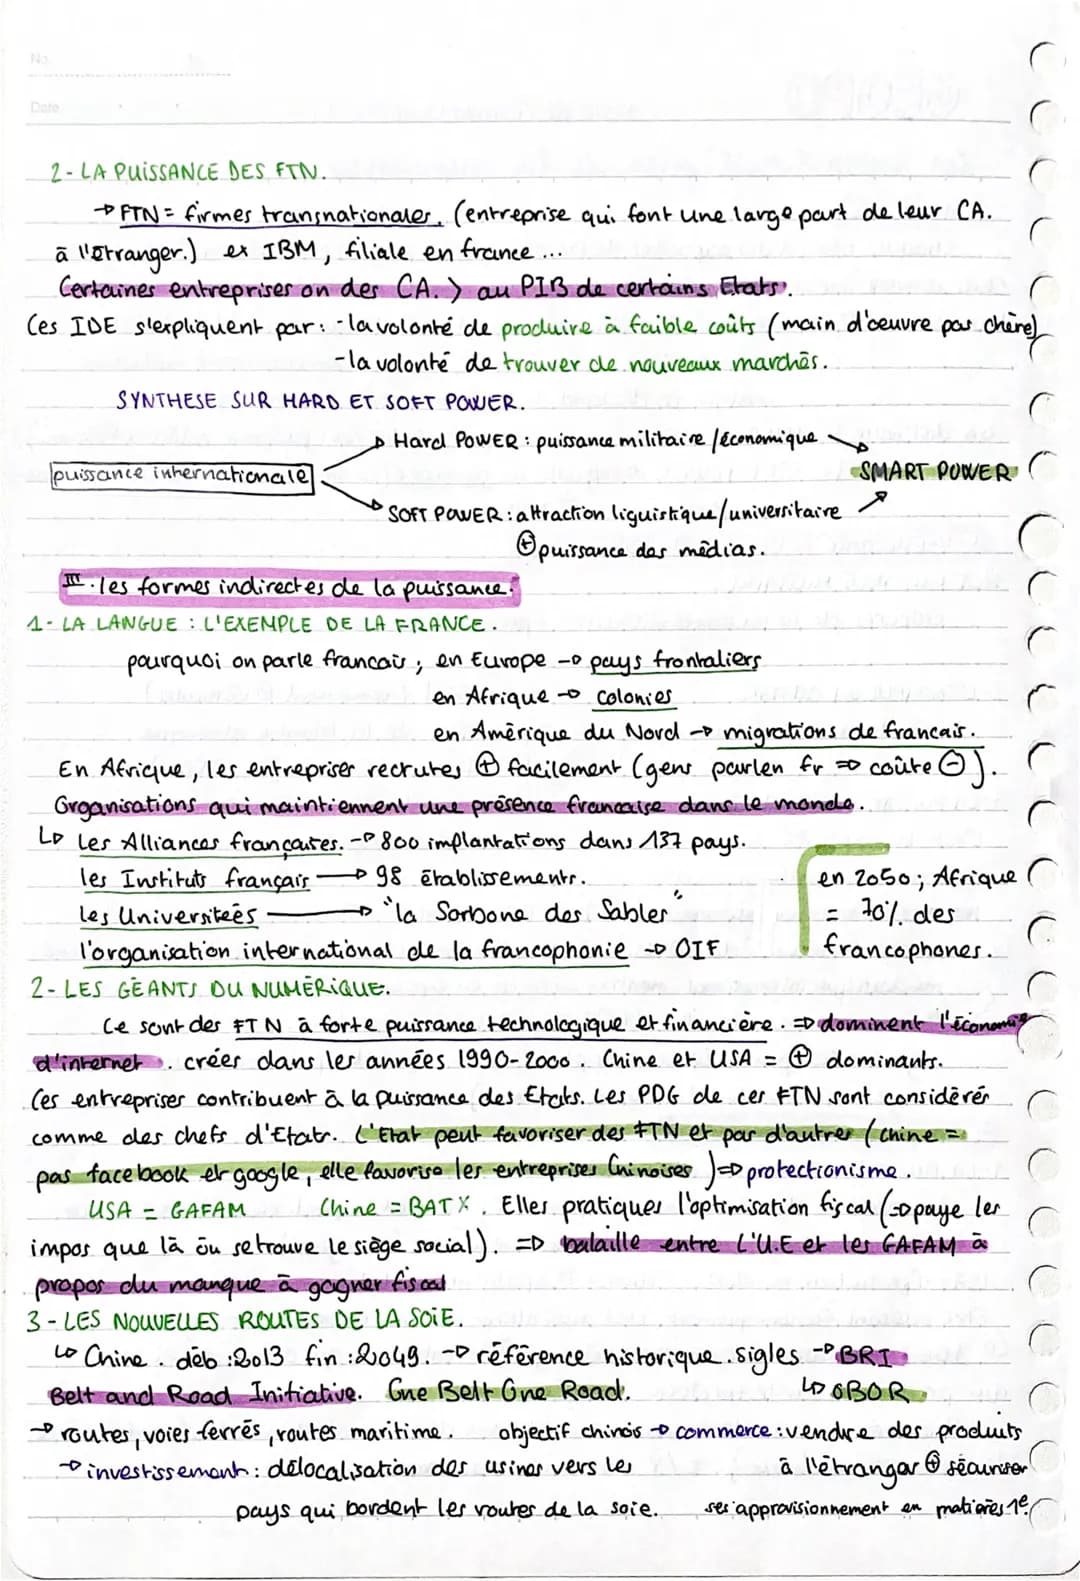 No
Date
2- LA PUISSANCE DES FTN.
→ FTN = firmes transnationales. (entreprise qui font une large part de leur CA.
à l'étranger.) ex IBM, filiale en france ...
Certaines entreprises on des CA. > au PIB de certains Etats.
Ces IDE s'expliquent par : - la volonté de produire à faible coûts (main d'oeuvre pas chère)
- la volonté de trouver de nouveaux marchés.
SYNTHESE SUR HARD ET SOFT POWER.
→ Hard POWER : puissance militaire / économique
puissance internationale
SMART POWER
→ SOFT POWER : attraction liguistique / universitaire
⊕ puissance des médias.
III. les formes indirectes de la puissance.
1- LA LANGUE : L'EXEMPLE DE LA FRANCE.
pourquoi on parle francais ; en Europe → pays frontaliers
en Afrique → colonies
en Amérique du Nord → migrations de francais.
En Afrique, les entrepriser recrutes ⊕ facilement (gens parlen fr ⇒ coûte ⊖).
Organisations qui maintiennent une présence francaise dans le monde.
↳ Les Alliances françaises. → 800 implantations dans 137 pays.
les Instituts français → 98 établissements.
Les Universiteés → "la Sorbone des Sables"
l'organisation international de la francophonie → OIF
en 2050 ; Afrique
= 70% des
francophones.
2- LES GÉANTS DU NUMÉRIQUE.
Ce sont des FTN à forte puissance technologique et financière. ⇒ dominent l'économie
d'internet. crées dans les années 1990-2000. Chine et USA = ⊕ dominants.
Ces entrepriser contribuent à la puissance des Etats. Les PDG de ces FTN sont considérés
comme des chefs d'Etats. L'Etat peut favoriser des FTN et pas d'autres (chine =
pas facebook et google, elle favorise les entreprises Chinoises) ⇒ protectionisme.
USA = GAFAM Chine = BATX. Elles pratiques l'optimisation fiscal (⇒ paye les
impos que là òu se trouve le siège social). ⇒ bataille entre L'U.E et les GAFAM à
propos du manque à gagner fiscal
3- LES NOUVELLES ROUTES DE LA SOIE.
↳ Chine. déb : 2013 fin : 2049. → référence historique. sigles → BRI
Belt and Road Initiative. One Belt One Road. ↳ OBOR.
→ routes, voies ferrés, routes maritime. objectif chinois → commerce : vendre des produits
→ investissement : délocalisation des usines vers les à l'étranger ⊕ sécuriser
pays qui bordent les routes de la soie. ses approvisionnement en matières 1e.